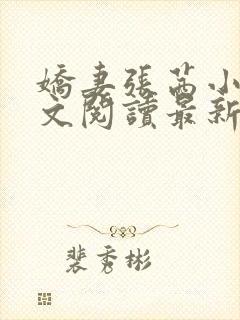 嬌妻張茜小
文閱讀最新
裴秀彬